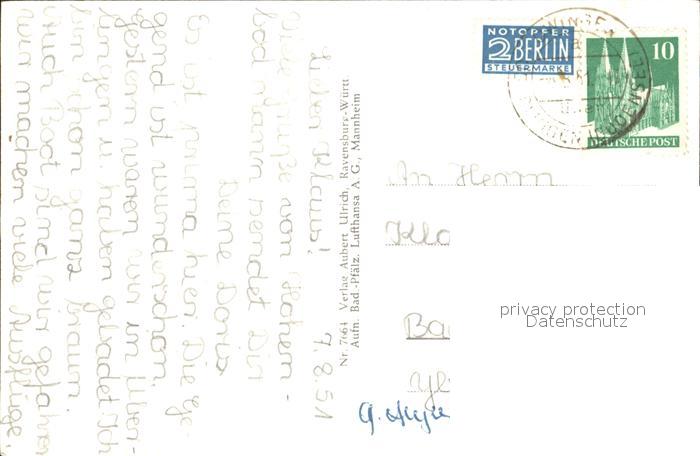 7.8.51
Lieber Klaus!
Viele Grüße von
Bodmann sendet Dir
Deine Doris
Es ist prima hier. Die Ge-
gend ist wunderschön.
Gestern waren wir in Über-
lingen u. haben gebadet. Ich
bin schon ganz braun.
Auch Boot sind wir gefahren
wir machen viele Ausflüge.
Nr. 7664 Verlag Aubert Ulrich, Ravensburg-Württ
Aufn. Bad.-Pfälz. Lufthansa A G., Mannheim
NOTOPFER
2 BERLIN
STEUERMARKE
10
DEUTSCHE POST
An Herrn
Kla
Ba
privacy protection
Datenschutz